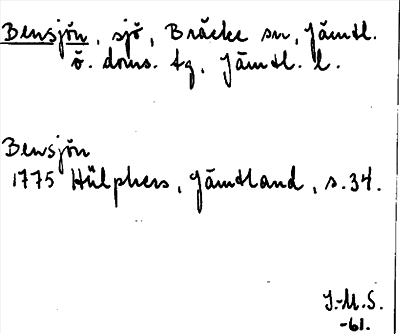 Bensjön, sjö, Bräcke sn, Jämtl.
ö. doms. tg, Jämtl. l.
Bensjön
1775 Hülphers, Jämtland, s. 34.
J.-M.S.
-61.